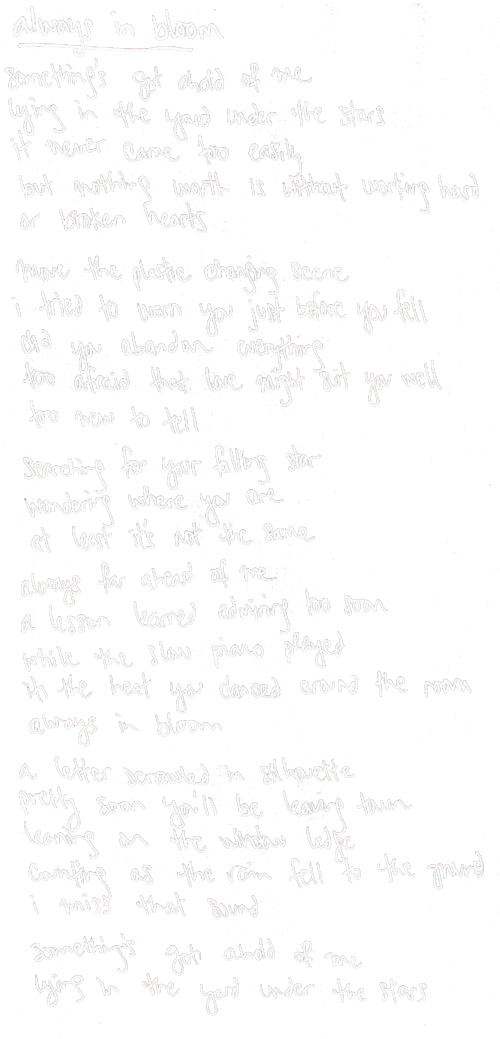 always in bloom
something's got ahold of me
lying in the yard under the stars
it never came too easily
but nothing worth is without working hard
or broken hearts
move the plastic changing scene
i tried to warn you just before you fell
did you abandon everything
too afraid that love might suit you well
too new to tell
searching for your falling star
wondering where you are
at least it's not the same
always far ahead of me
a lesson learned admiring too soon
while the slow piano played
it's the heat you danced around the room
always in bloom
a letter scrawled in silhouette
pretty soon you'll be leaving town
leaning on the window ledge
counting as the rain fell to the ground
i miss that sound
something's got ahold of me
lying in the yard under the stars